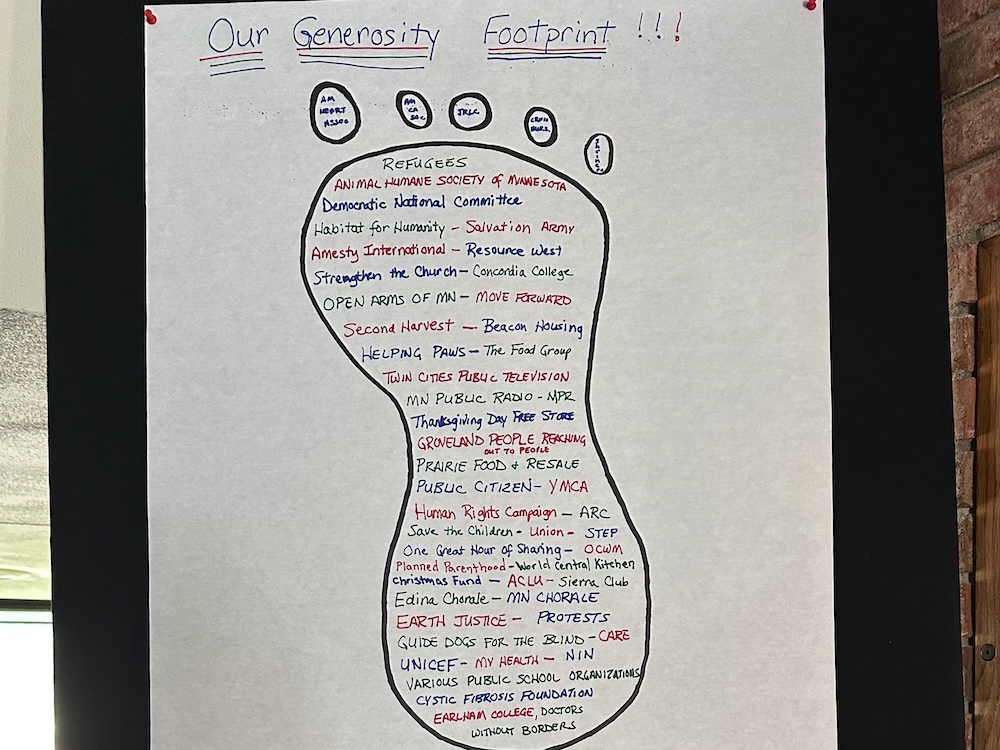 Our Generosity Footprint !!!
AM
HEART
ASSOC
AM
CA
SOC
JRLC
REFUGEES
ANIMAL HUMANE SOCIETY of MINNESOTA
Democratic National Committee
Habitat for Humanity - Salvation ARMY
Amesty International - Resource West
Strengthen the Church - Concordia College
OPEN ARMS OF MN - MOVE FORWARD
Second Harvest - Beacon Housing
HELPING PAWS - The Food Group
TWIN CITIES PUBLIC TELEVISION
MN PUBLIC RADIO - MPR
Thanksgiving Day FREE STORE
GROVELAND PEOPLE REACHING
OUT TO PEOPLE
PRAIRIE FOOD & RESALE
PUBLIC CITIZEN - YMCA
Human Rights Campaign - ARC
Save the Children - Union - STEP
One Great Hour of Sharing - OCWM
Planned Parenthood - World Central Kitchen
Christmas Fund - ACLU - Sierra Club
Edina Chorale - MN CHORALE
EARTH JUSTICE - PROTESTS
GUIDE DOGS FOR THE BLIND - CARE
UNICEF - MY HEALTH - NIN
VARIOUS PUBLIC SCHOOL ORGANIZATIONS
CYSTIC FIBROSIS FOUNDATION
EARLHAM COLLEGE, DOCTORS
WITHOUT BORDERS